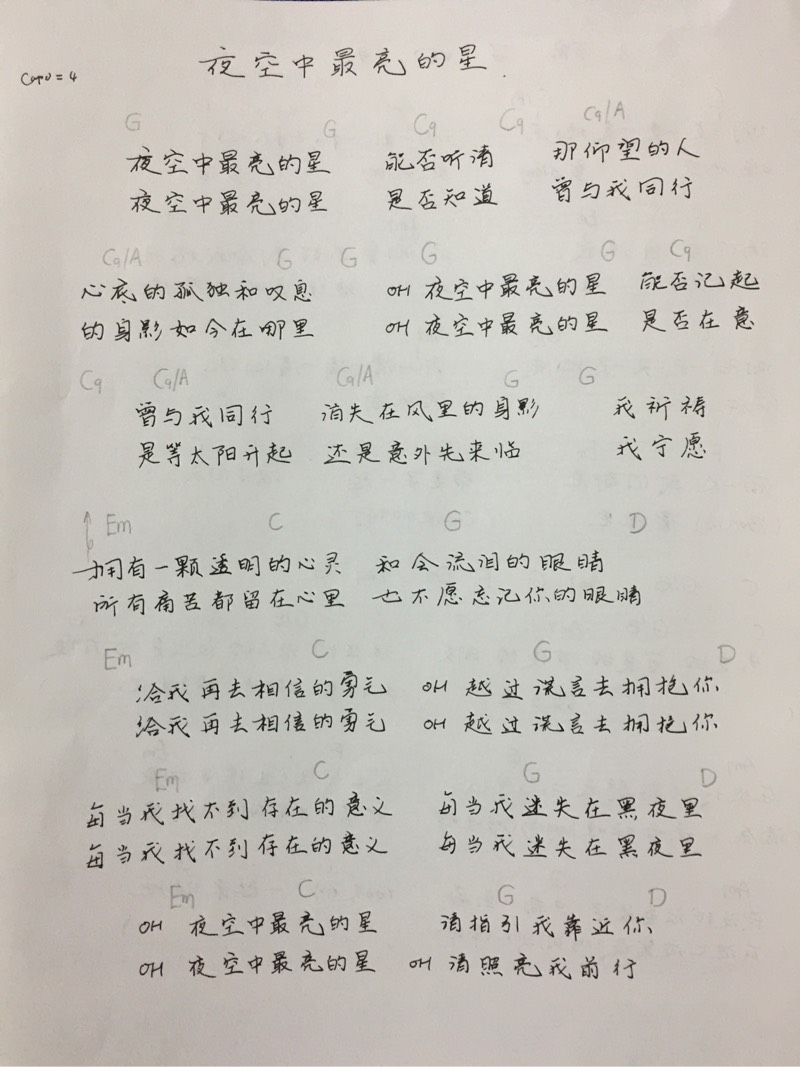 夜空中最亮的星
Capo = 4
G G C9 C9 C9/A
夜空中最亮的星 能否听清 那仰望的人
夜空中最亮的星 是否知道 曾与我同行
C9/A G G G G C9
心底的孤独和叹息 OH 夜空中最亮的星 能否记起
的身影如今在哪里 OH 夜空中最亮的星 是否在意
C9 C9/A C9/A G G
曾与我同行 消失在风里的身影 我祈祷
是等太阳升起 还是意外先来临 我宁愿
Em C G D
拥有一颗透明的心灵 和会流泪的眼睛
所有痛苦都留在心里 也不愿忘记你的眼睛
Em C G D
给我再去相信的勇气 OH 越过谎言去拥抱你
给我再去相信的勇气 OH 越过谎言去拥抱你
Em C G D
每当我找不到存在的意义 每当我迷失在黑夜里
每当我找不到存在的意义 每当我迷失在黑夜里
Em C G D
OH 夜空中最亮的星 请指引我靠近你
OH 夜空中最亮的星 OH 请照亮我前行